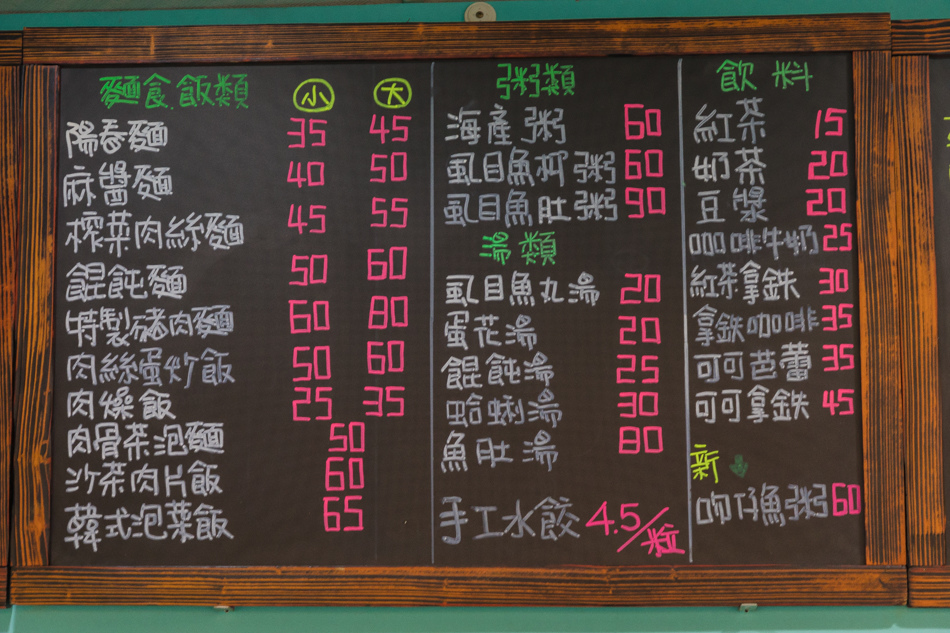 麵食.飯類 小 大
陽春麵 35 45
麻醬麵 40 50
榨菜肉絲麵 45 55
餛飩麵 50 60
特製豬肉麵 60 80
肉絲蛋炒飯 50 60
肉燥飯 25 35
肉骨茶泡麵 50
沙茶肉片飯 60
韓式泡菜飯 65
粥類
海產粥 60
虱目魚粥 60
虱目魚肚粥 90
湯類
虱目魚丸湯 20
蛋花湯 20
餛飩湯 25
蛤蜊湯 30
魚肚湯 80
手工水餃 4.5/粒
飲料
紅茶 15
奶茶 20
豆漿 20
咖啡牛奶 25
紅茶拿鉄 30
拿鉄咖啡 35
可可芭蕾 35
可可拿鉄 45
新↓
吻仔魚粥 60